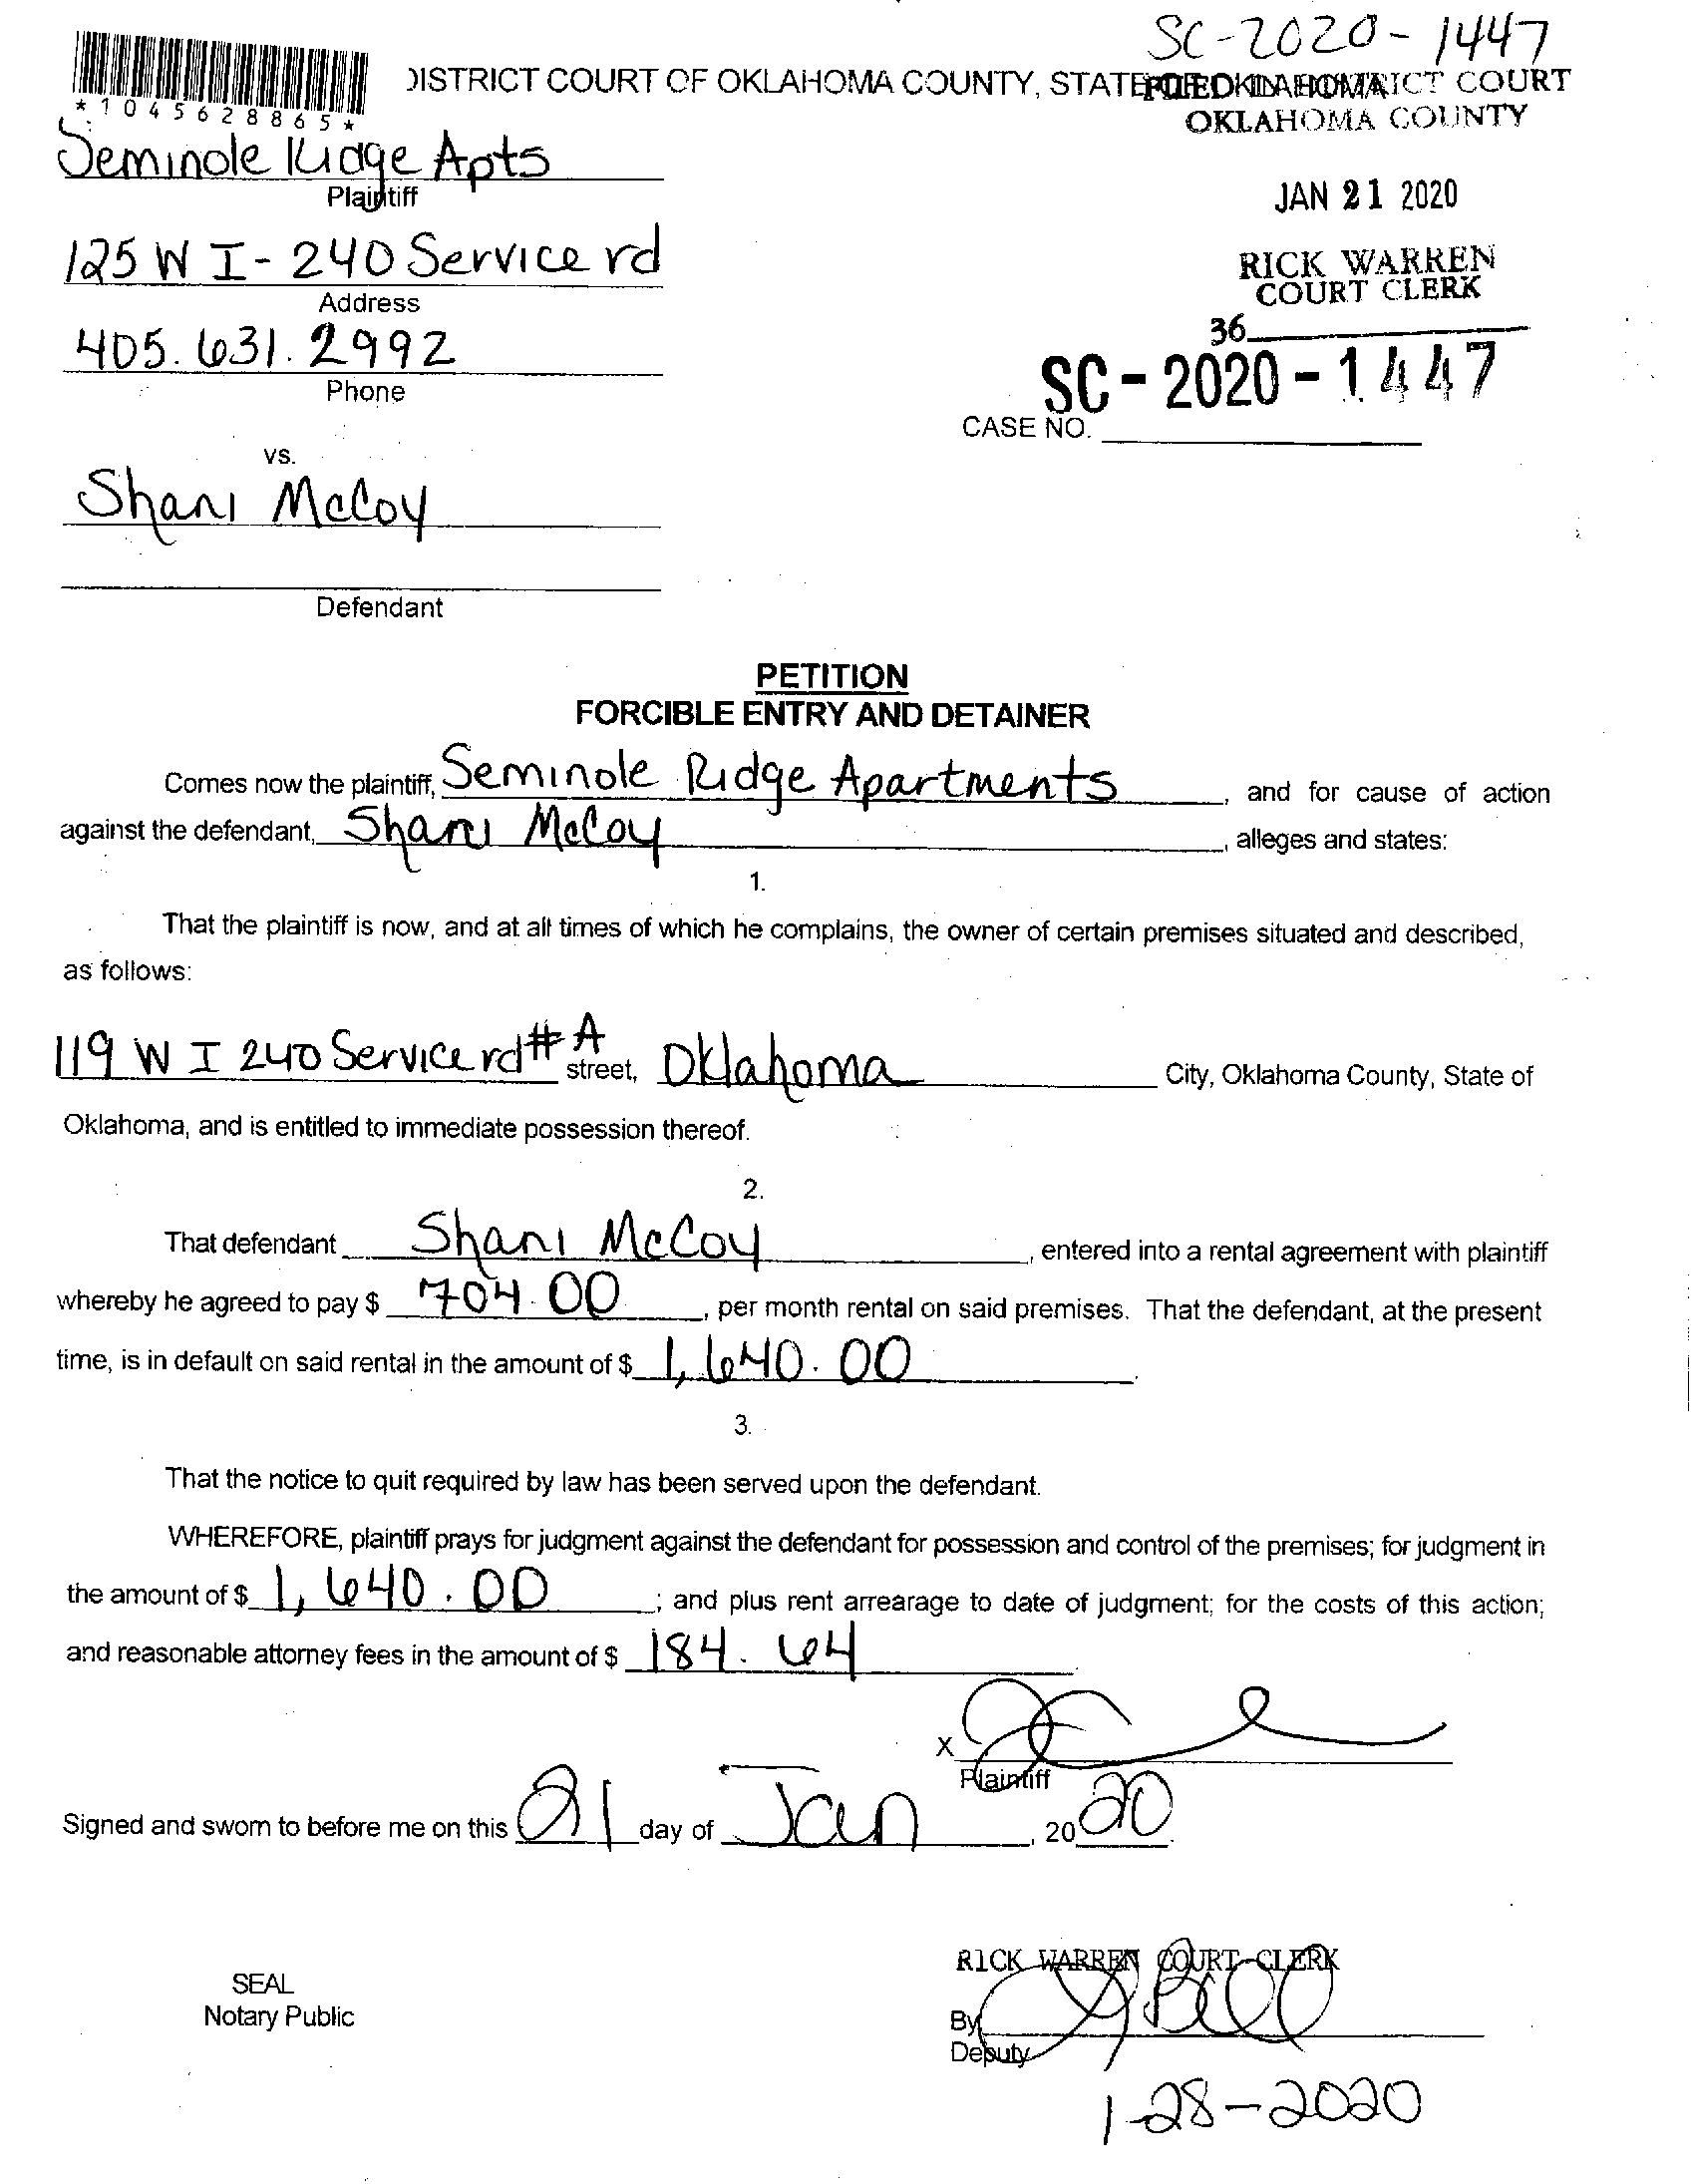 SC-2020-1447
DISTRICT COURT OF OKLAHOMA COUNTY, STATE OF OKLAHOMA
FILED IN DISTRICT COURT
OKLAHOMA COUNTY
*1045628865*
Seminole Ridge Apts
Plaintiff
JAN 21 2020
125 W I-240 Service rd
Address
RICK WARREN
COURT CLERK
405.631.2992
Phone
36
SC-2020-1447
CASE NO.
vs.
Shani McCoy
Defendant
PETITION
FORCIBLE ENTRY AND DETAINER
Comes now the plaintiff, Seminole Ridge Apartments, and for cause of action
against the defendant, Shani McCoy, alleges and states:
1.
That the plaintiff is now, and at all times of which he complains, the owner of certain premises situated and described,
as follows:
119 W I 240 Service rd # A street, Oklahoma City, Oklahoma County, State of
Oklahoma, and is entitled to immediate possession thereof.
2.
That defendant Shani McCoy, entered into a rental agreement with plaintiff
whereby he agreed to pay $ 704.00, per month rental on said premises. That the defendant, at the present
time, is in default on said rental in the amount of $ 1,640.00.
3.
That the notice to quit required by law has been served upon the defendant.
WHEREFORE, plaintiff prays for judgment against the defendant for possession and control of the premises; for judgment in
the amount of $ 1,640.00; and plus rent arrearage to date of judgment; for the costs of this action;
and reasonable attorney fees in the amount of $ 184.64
X
Plaintiff
Signed and sworn to before me on this 21 day of Jan, 2020.
SEAL
Notary Public
RICK WARREN COURT CLERK
By
Deputy
1-28-2020